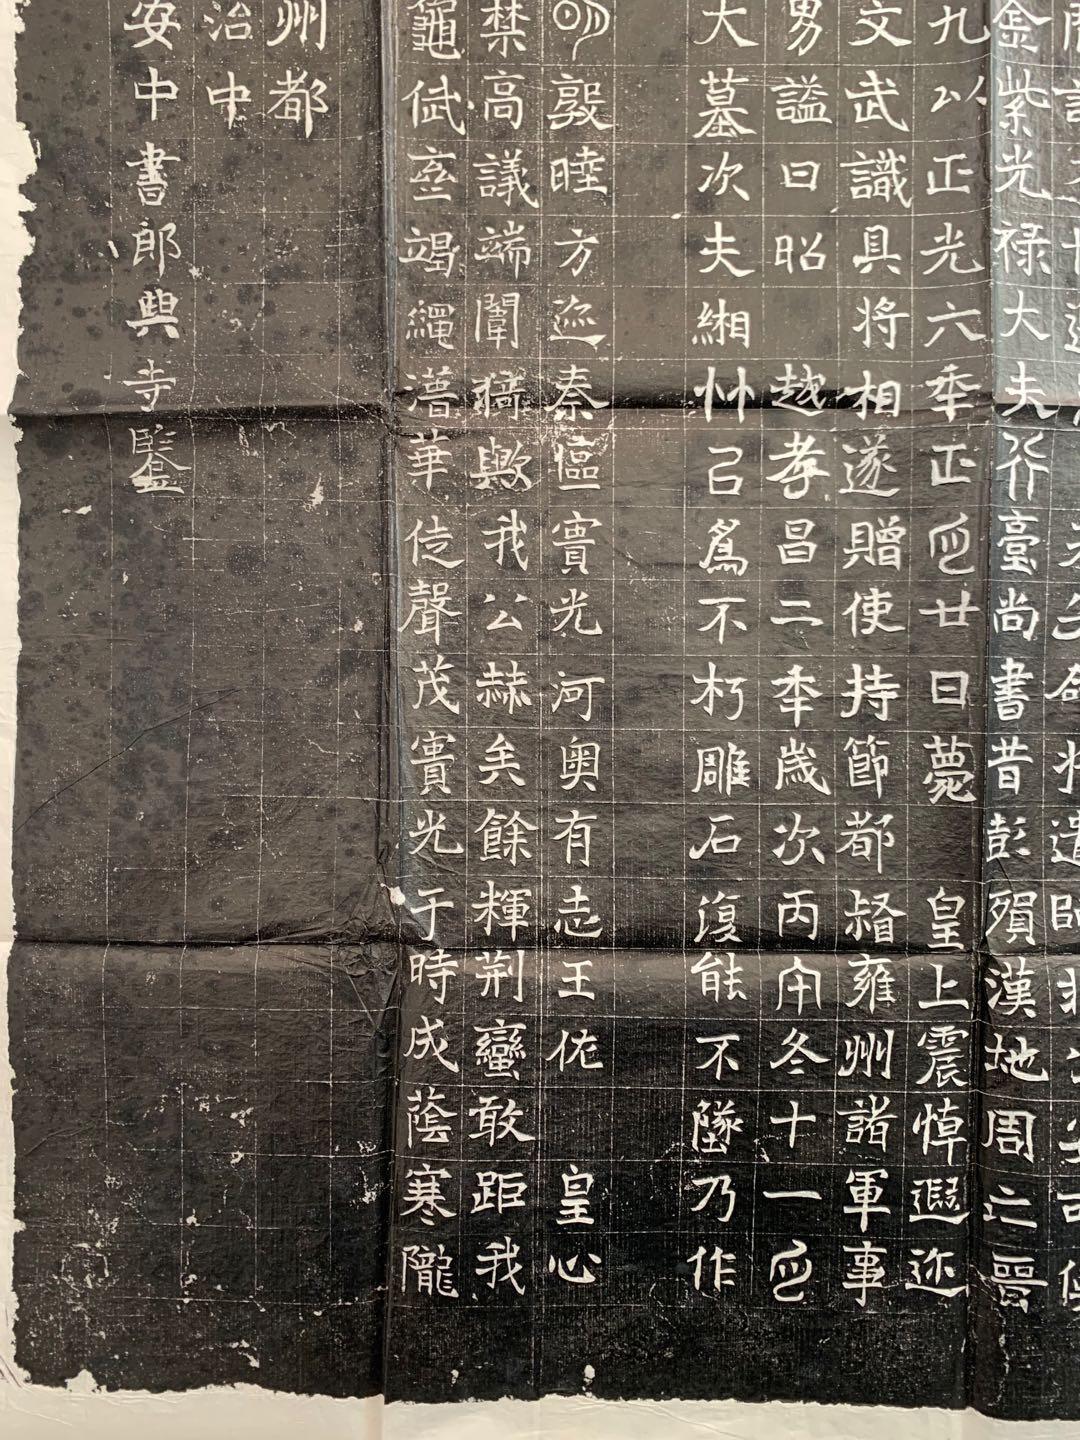 金紫光祿大夫行臺尚書昔彭殞漢地周之晉
九以正光六年正月廿日薨 皇上震悼遐迩
文武識具將相遂贈使持節都督雍州諸軍事
男謚曰昭 越孝昌二年歲次丙午冬十一月
大墓次夫緗竹已爲不朽雕石復能不墜乃作
敦睦方巡秦區實光河奧有志王佐 皇心
禁高議端闈猗歟我公赫矣餘輝荆蠻敢距我
龜武竭繩潛華徒聲茂實光于時成蔭寒隴
州都
治中
安中書郎興寺鑒